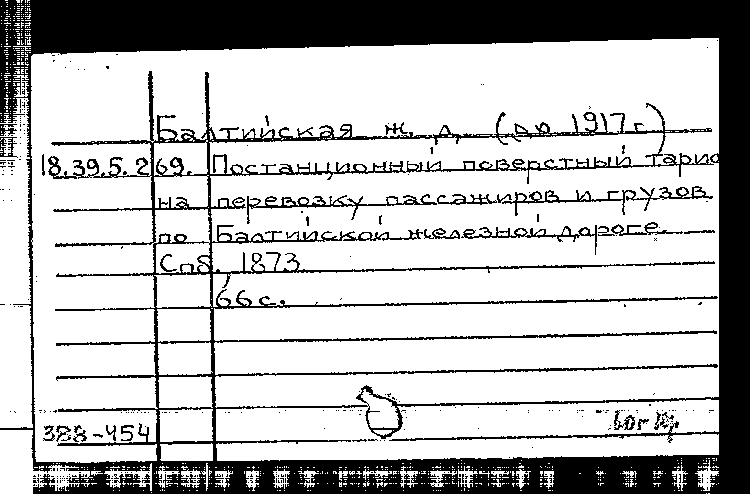 Балтийская ж. д. (до 1917 г)
18.39.5.269. Постанционный поверстный тариф
на перевозку пассажиров и грузов
по Балтийской железной дороге.
Спб., 1873
66 с.
388-454